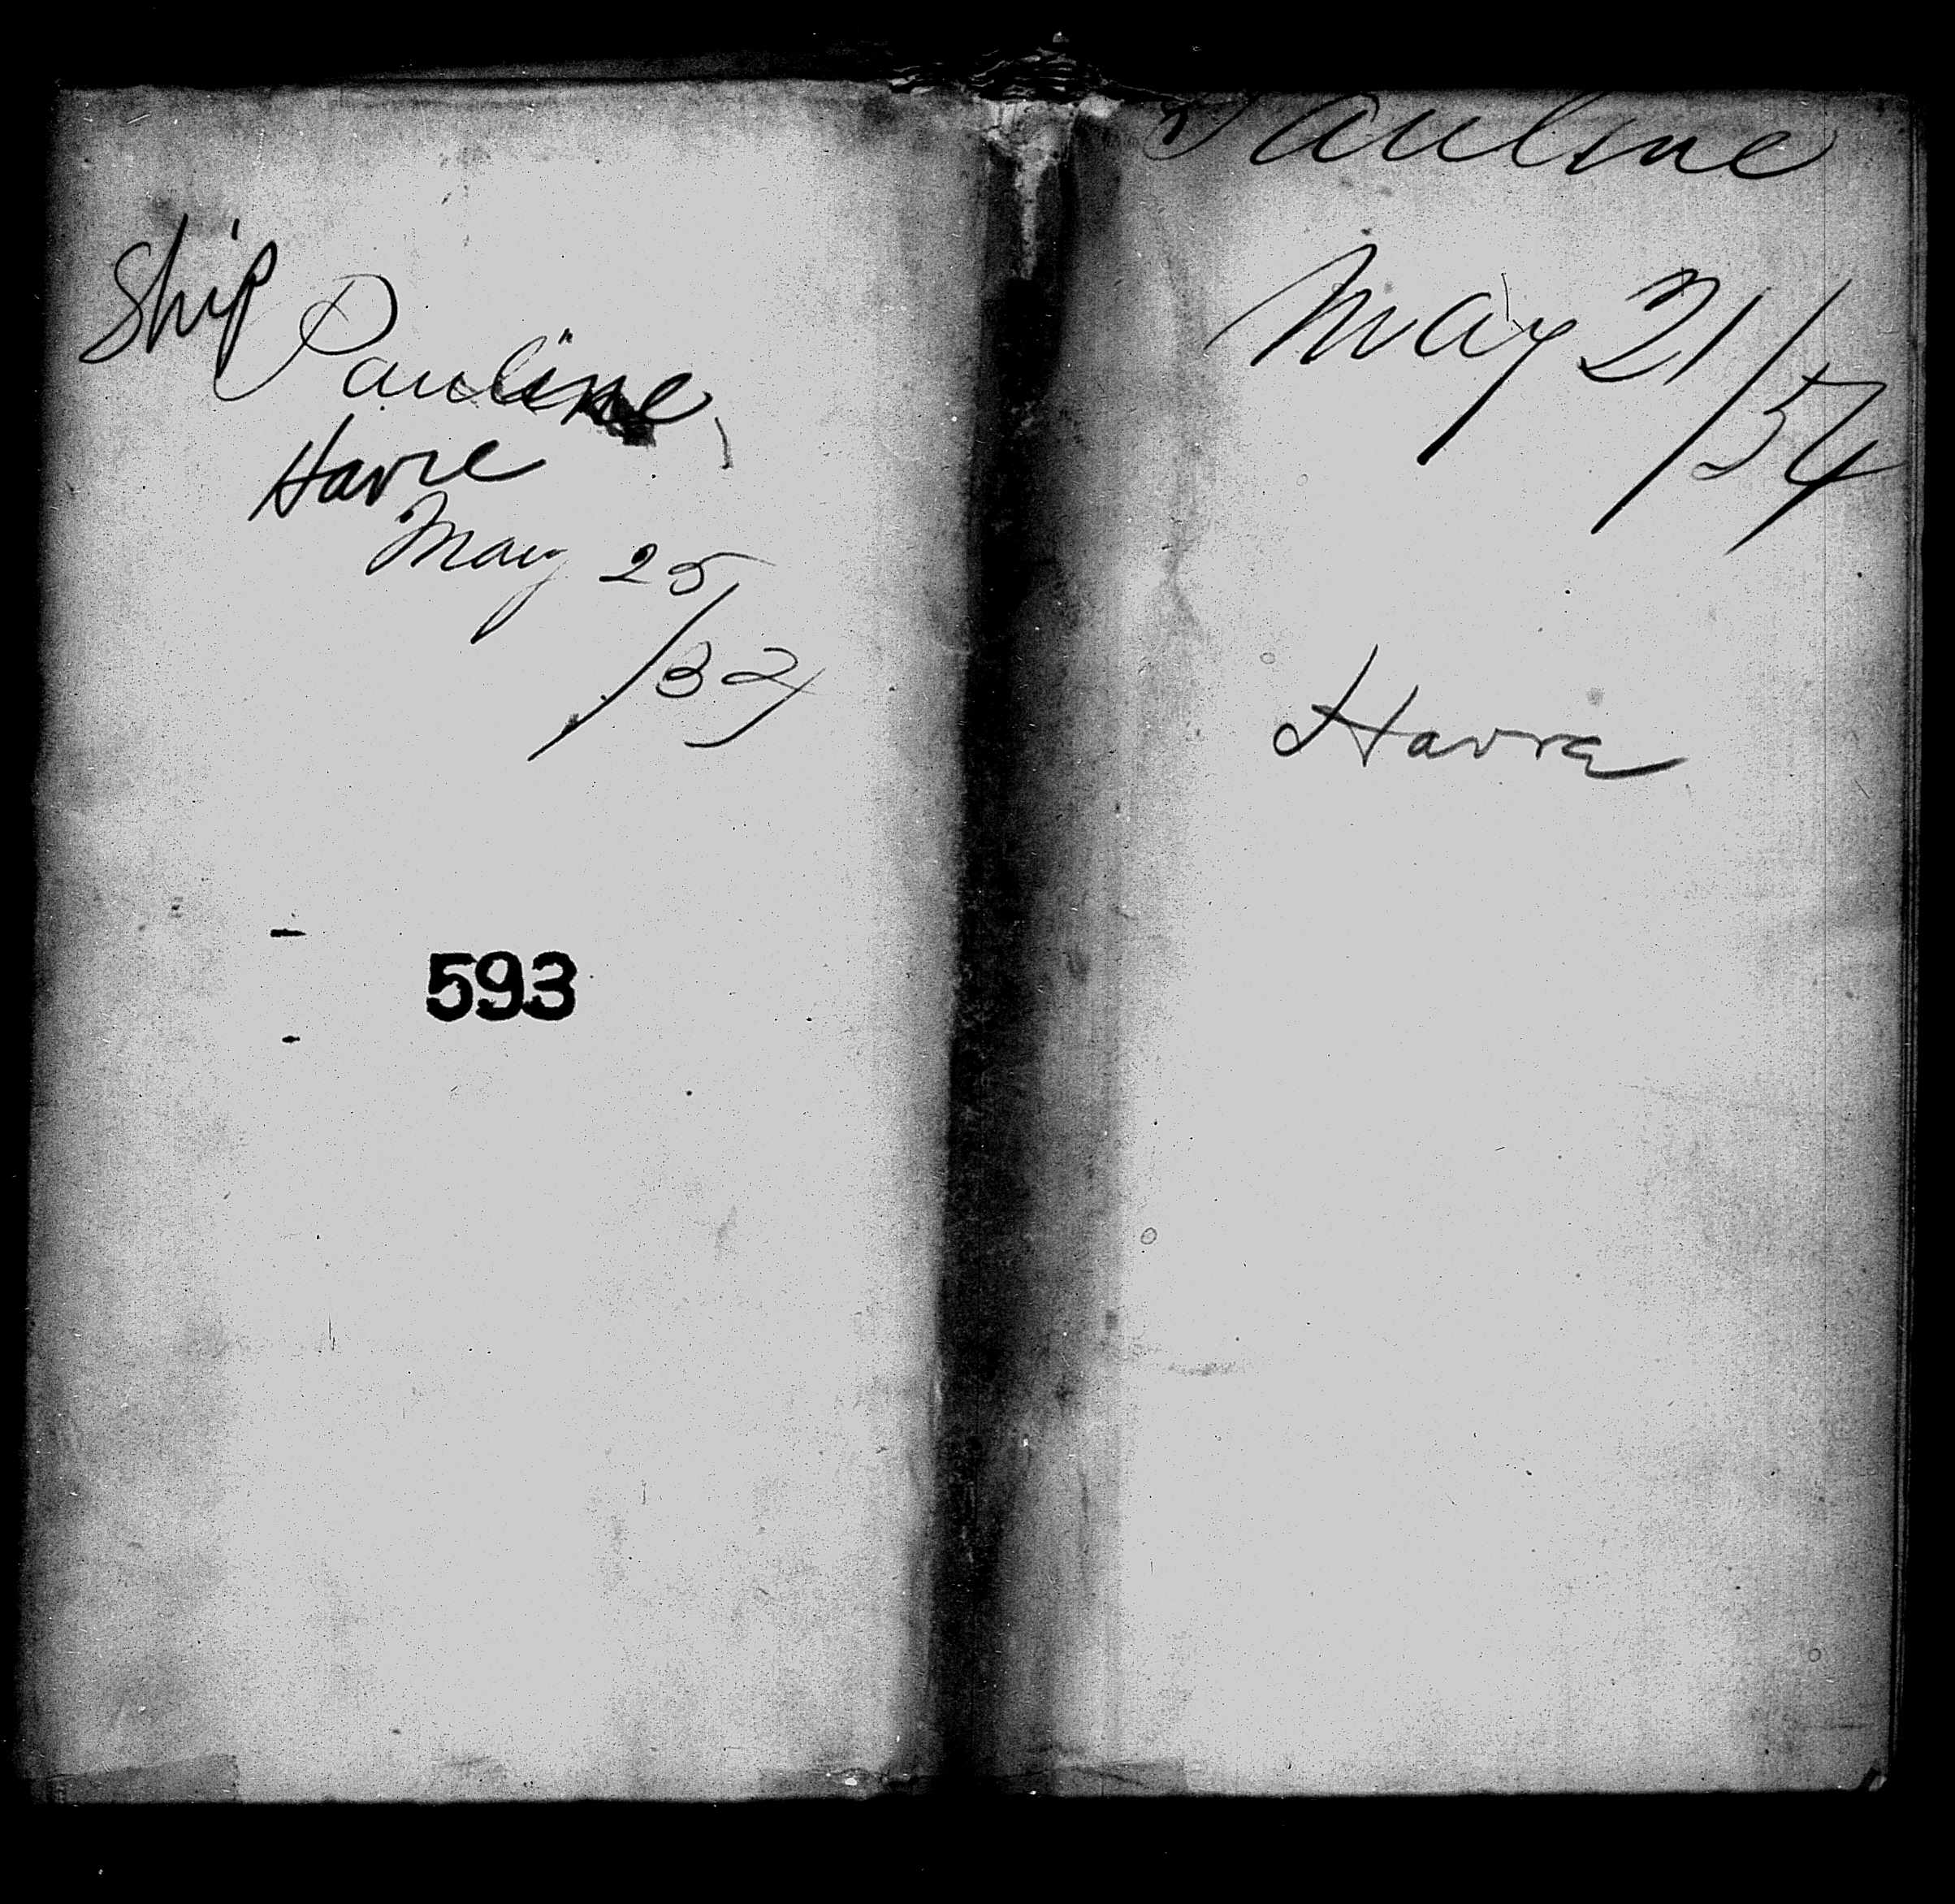 Ship
Pauline
Havre
May 25
593
Pauline
May 21/54
Havre